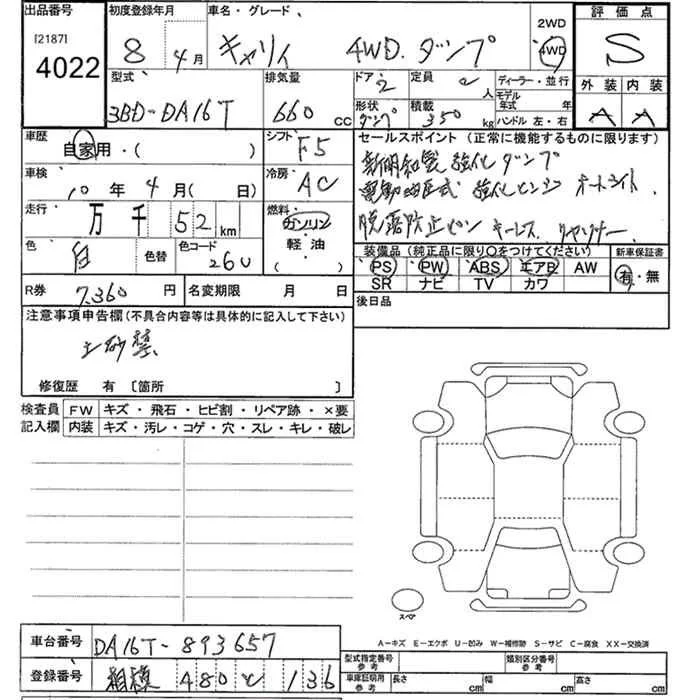 出品番号 初度登録年月 車名・グレード 2WD 評価点
[2187] 8 4月 キャリィ 4WD. ダンプ 4WD S
4022
型式 排気量 ドア 定員 ディーラー・並行 外装 内装
3BD-DA16T 660 CC 2 2人 モデル年式 年 A A
形状 積載
ダンプ 350 kg ハンドル 左・右
車歴 シフト セールスポイント(正常に機能するものに限ります)
自家用・( ) F5 新明和製 強化ダンプ
車検 冷房 電動油圧式 強化ヒンジ オートライト
10年4月( 日) AC 脱落防止ピン キーレス
走行 燃料
万千52km ガソリン
軽・油
( )
色 色替 色コード
白 26U
装備品(純正品に限り○をつけてください) 新車保証書
PS PW ABS エアB AW 有・無
SR ナビ TV カワ
R券 7,360円 名変期限 月 日 後日品
注意事項申告欄(不具合内容等は具体的に記入して下さい)
土砂禁
修復歴 有〔箇所 〕
検査員記入欄 FW キズ・飛石・ヒビ割・リペア跡・×要
内装 キズ・汚レ・コゲ・穴・スレ・キレ・破レ
スペア
A-キズ E-エクボ U-凹み W-補修跡 S-サビ C-腐食 XX-交換済
車台番号 DA16T-893657
型式指定番号 参考 類別区分番号 参考
登録番号 相模 480 136
車庫証明用 参考 長さ cm 幅 cm 高さ cm